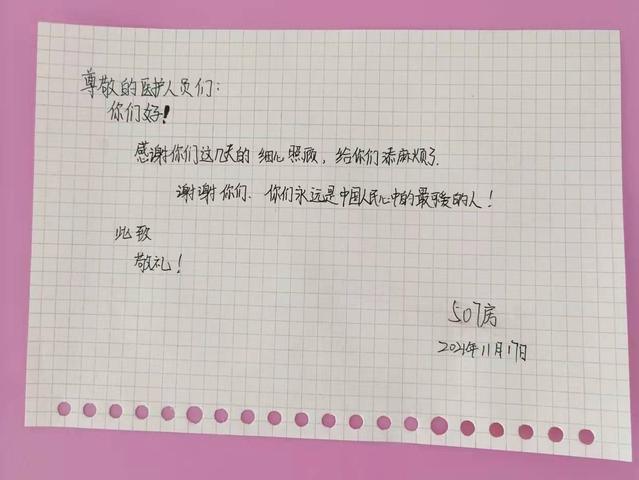 尊敬的医护人员们:
你们好!
感谢你们这几天的细心照顾, 给你们添麻烦了.
谢谢你们. 你们永远是中国人民心中的最可爱的人!
此致
敬礼!
507房
2021年11月17日